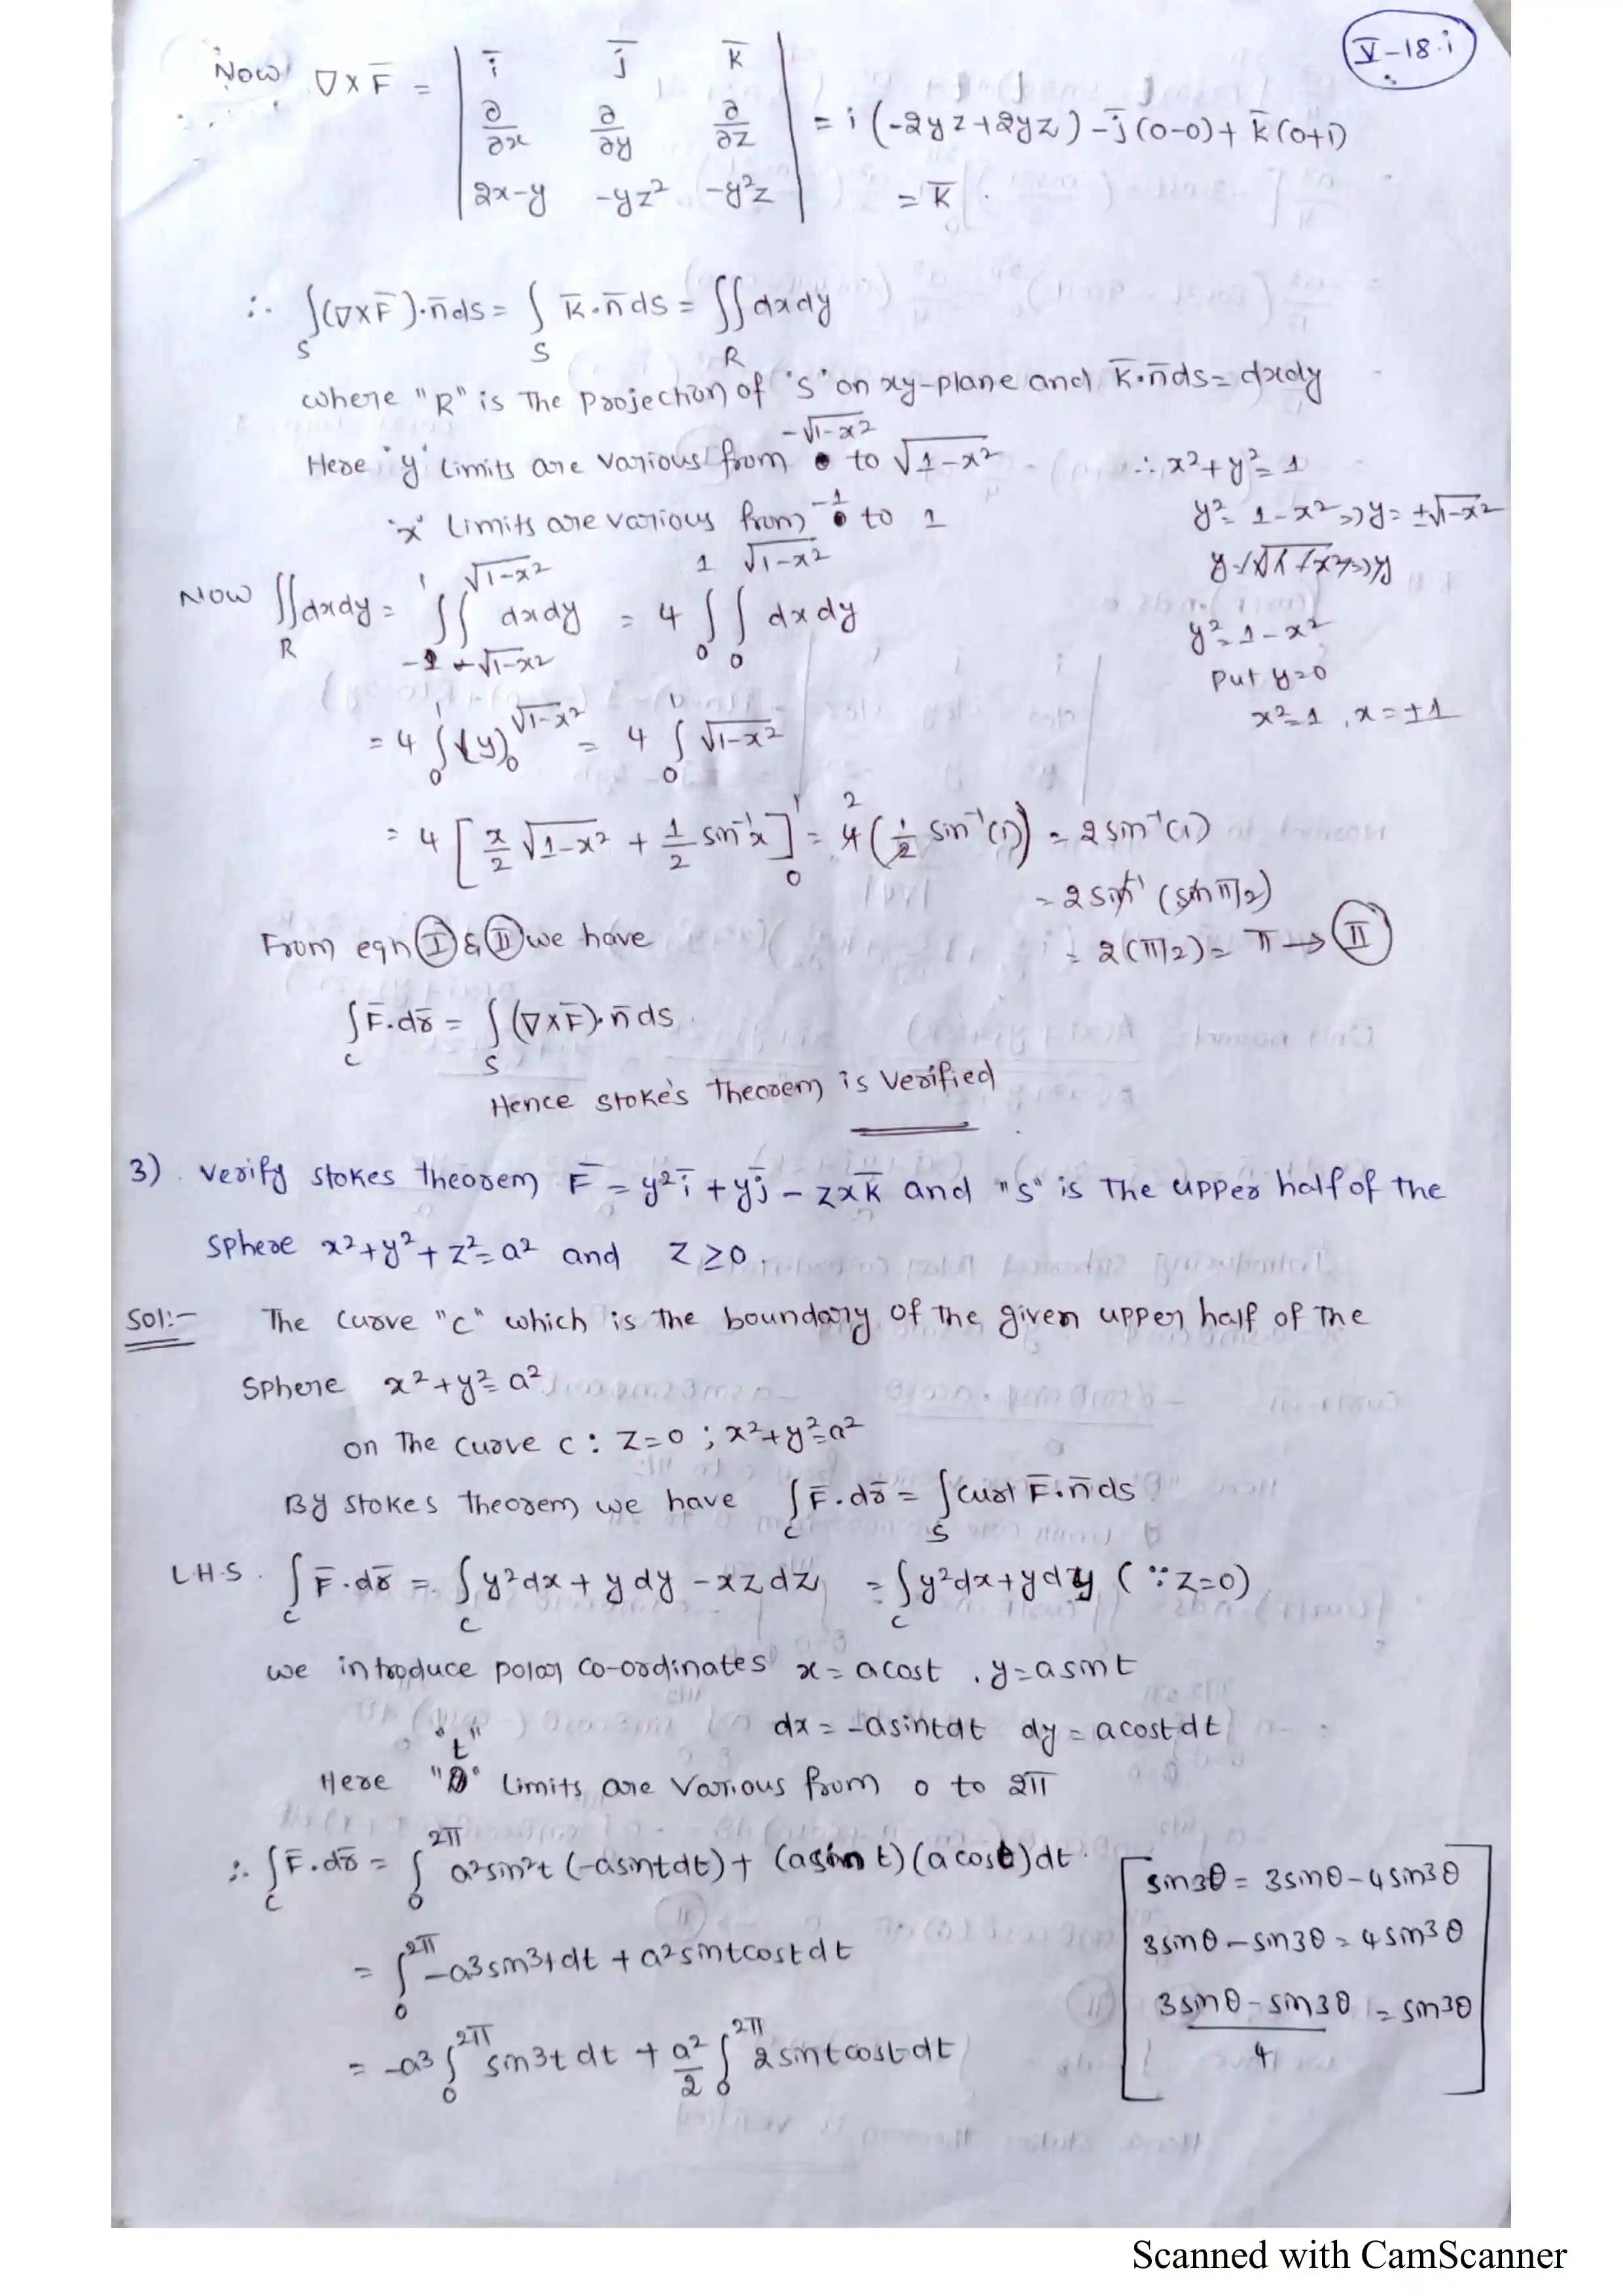 V-18.i
Now ∇×F̄ = | ī j̄ k̄ |
| ∂/∂x ∂/∂y ∂/∂z | = i(-2yz+2yz) - j̄(0-0) + k̄(0+1)
| 2x-y -yz² -y²z | = k̄.
∴ ∫_S (∇×F̄).n̄ ds = ∫_S k̄.n̄ ds = ∬_R dxdy
where "R" is The Projection of 's' on xy-plane and k̄.n̄ds = dxdy
Here 'y' Limits are various from -√1-x² to √1-x² ∴ x²+y²=1
y²= 1-x² => y= ±√1-x²
'x' Limits are various from -1 to 1
y²=1-x²
Put y=0
x²=1, x=±1
Now ∬_R dxdy = ∫_{-1}^{1} ∫_{-√1-x²}^{√1-x²} dxdy = 4 ∫_0^1 ∫_0^{√1-x²} dxdy
= 4 ∫_0^1 (y)_0^{√1-x²} = 4 ∫_0^1 √1-x²
= 4 [x/2 √1-x² + 1/2 sin⁻¹x]_0^1 = 4(1/2 sin⁻¹(1)) = 2sin⁻¹(1)
= 2 sin⁻¹(sin π/2)
From eqn (I) & (II) we have = 2(π/2) = π → (II)
∫_C F̄.dr̄ = ∫_S (∇×F̄).n̄ ds.
Hence stoke's Theorem is Verified
3). Verify stokes theorem F̄ = y²ī + yj̄ - zxk̄ and "s" is The upper half of the
Sphere x²+y²+z²=a² and z ≥0.
Sol:- The curve "c" which is the boundary of the given upper half of The
Sphere x²+y²=a²
on The curve c : z=0 ; x²+y²=a²
By stokes theorem we have ∫_C F̄.dr̄ = ∫_S curl F̄.n̄ ds
L.H.S. ∫_C F̄.dr̄ = ∫_C y²dx + y dy - xz dz = ∫_C y²dx+ydy (∵ z=0)
we introduce polar co-ordinates x = acost , y=asint
dx = -asintdt dy = acostdt
Here "t" Limits are Various from 0 to 2π
∴ ∫_C F̄.dr̄ = ∫_0^{2π} a²sin²t (-asintdt) + (asin t)(a cost)dt.
= ∫_0^{2π} -a³sin³t dt + a²sintcostdt
= -a³ ∫_0^{2π} sin³t dt + a²/2 ∫_0^{2π} 2sintcostdt
sin3θ = 3sinθ-4sin³θ
3sinθ-sin3θ = 4sin³θ
3sinθ-sin3θ/4 = sin³θ
Scanned with CamScanner